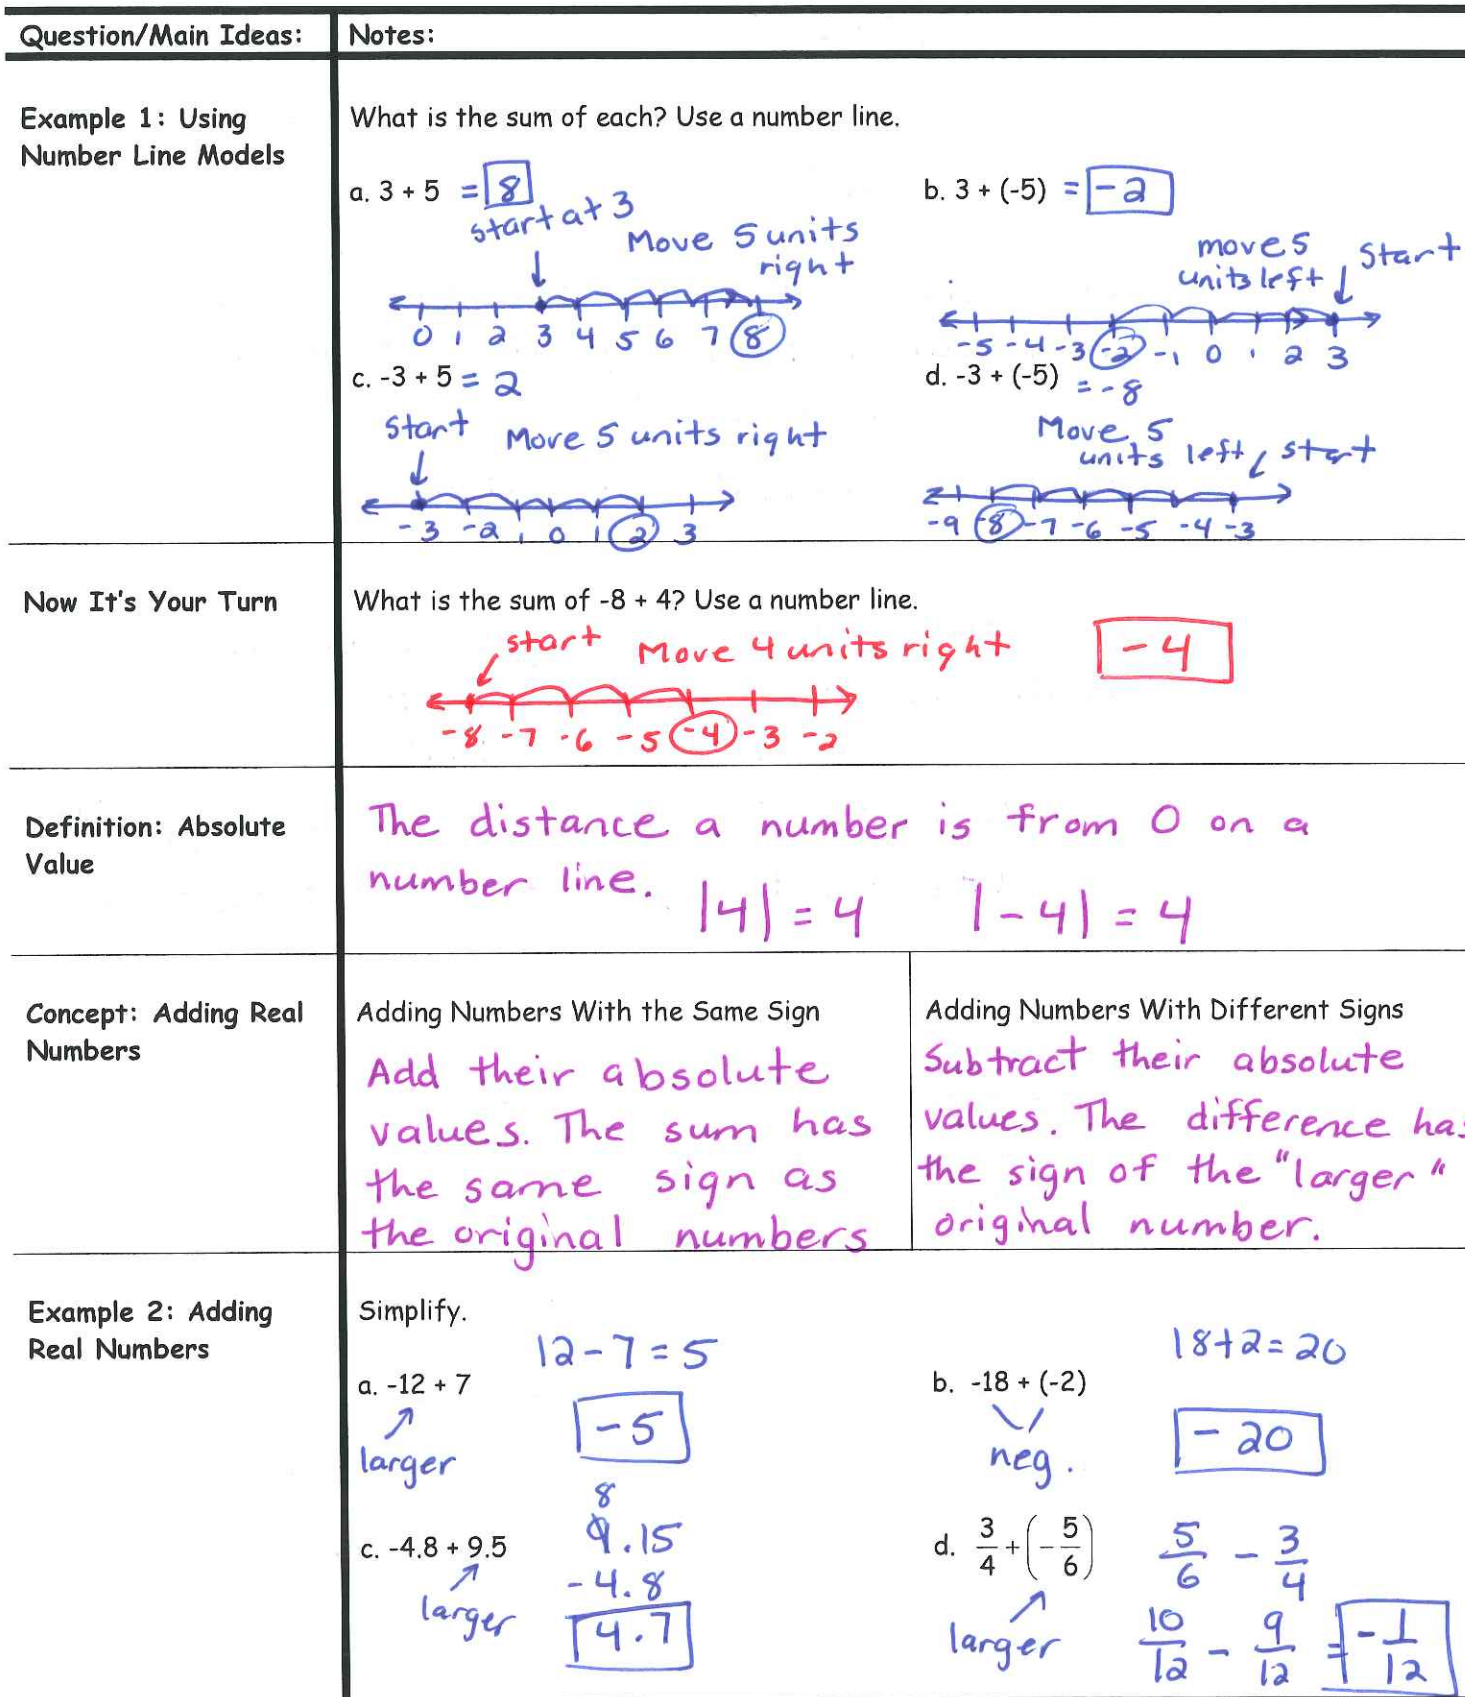 Question/Main Ideas: Notes:
Example 1: Using
Number Line Models
What is the sum of each? Use a number line.
a. 3 + 5 = 8
start at 3
Move 5 units
right
0 1 2 3 4 5 6 7 8
b. 3 + (-5) = -2
move 5
units left
start
-5 -4 -3 -2 -1 0 1 2 3
c. -3 + 5 = 2
start Move 5 units right
-3 -2 -1 0 1 2 3
d. -3 + (-5) = -8
Move 5
units left start
-9 -8 -7 -6 -5 -4 -3
Now It's Your Turn
What is the sum of -8 + 4? Use a number line.
start Move 4 units right -4
-8 -7 -6 -5 -4 -3 -2
Definition: Absolute
Value
The distance a number is from 0 on a
number line. |4| = 4 |-4| = 4
Concept: Adding Real
Numbers
Adding Numbers With the Same Sign
Add their absolute
values. The sum has
the same sign as
the original numbers
Adding Numbers With Different Signs
Subtract their absolute
values. The difference has
the sign of the "larger"
original number.
Example 2: Adding
Real Numbers
Simplify.
12 - 7 = 5
a. -12 + 7
larger
-5
18 + 2 = 20
b. -18 + (-2)
neg.
-20
c. -4.8 + 9.5
larger
8
9.15
-4.8
4.7
d. 3/4 + (-5/6)
larger
5/6 - 3/4
10/12 - 9/12 = -1/12